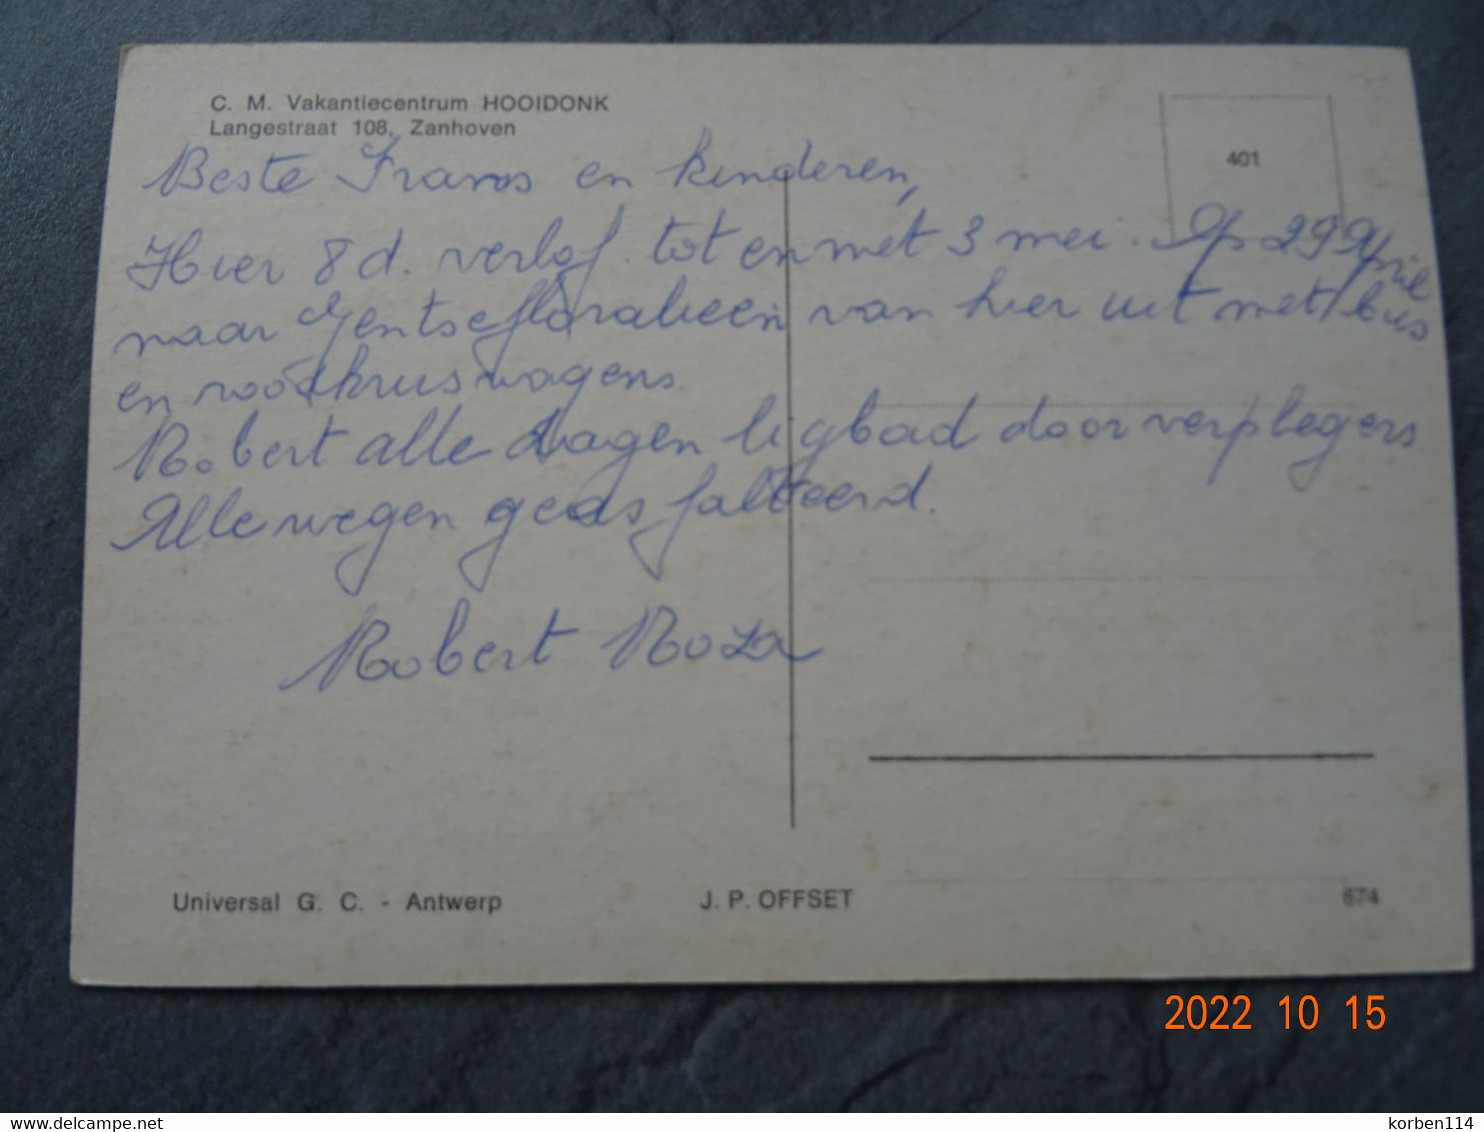 C. M. Vakantiecentrum HOOIDONK
Langestraat 108, Zanhoven
401
Beste Frans en kinderen,
Hier 8 d. verlof tot en met 3 mei. Op 29 April
naar Gentse floralieën van hier uit met bus
en roodkruiswagens.
Robert alle dagen ligbad door verplegers
Alle wegen geasfalteerd.
Robert Roza
Universal G. C. - Antwerp
J. P. OFFSET
674
2022 10 15
delcampe.net
korben114